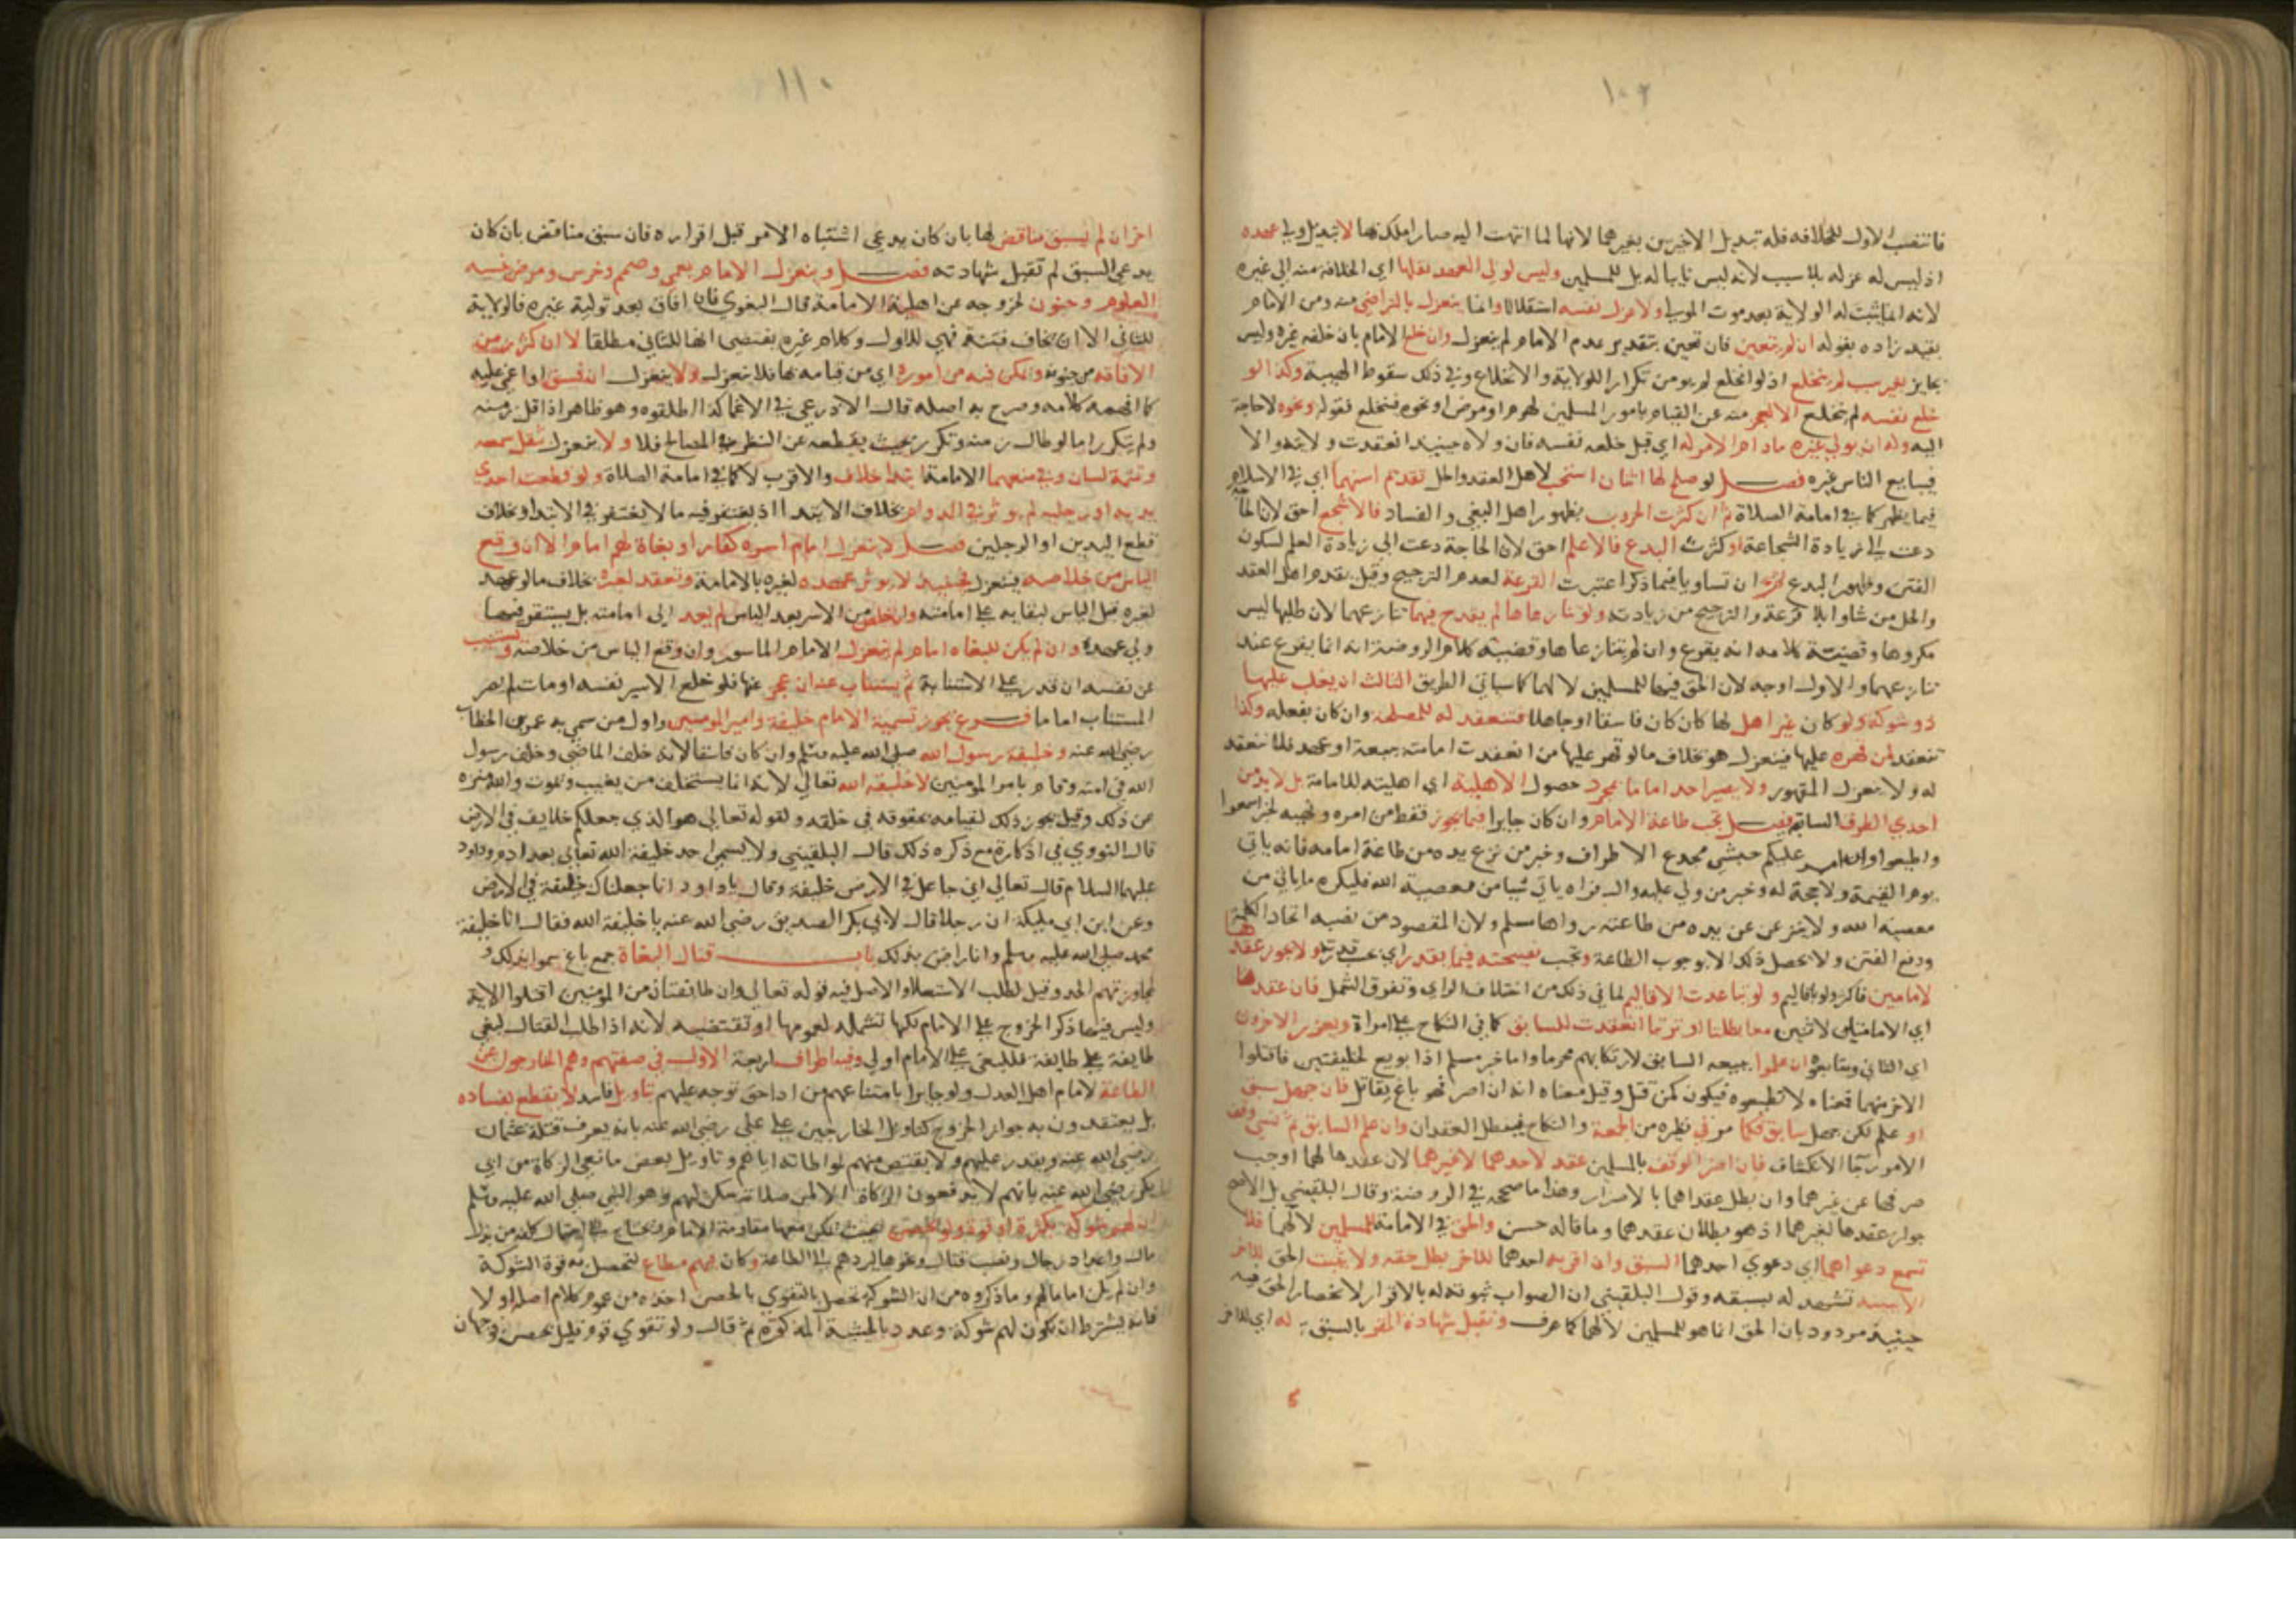 ١٠٢
فانتصب الاول للخلافه فله تبديل الاخيرين بغيرهما لانها لما انتهت اليه صار املك بها لا تبديل ولي عهده
اذ ليس له عزله بلا سبب لانه ليس نايبا له بل للمسلمين وليس لولي العهد نقلها اي الخلافة منه الي غيره
لانه انما يثبت له الولاية بعد موت المولي ولا عزل نفسه استقلالا وانما ينعزل بالتراضي منه ومن الامام
بقيد زاده بقوله ان لم يتعين فان تعين بتقدير عدم الامام لم ينعزل وان خلع الامام بان خلفه غيره وليس
بجايز بغير سبب لم ينخلع اذ لو انخلع لم يومن تكرار الولاية والانخلاع وفي ذلك سقوط الهيبة وكذا لو
خلع نفسه لم ينخلع الا لعجز منه عن القيام بامور المسلمين لهرم او مرض او نحوه فينخلع فقوله ونحوه لا حاجة
اليه وله ان يولي غيره ما دام الامر له اي قبل خلعه نفسه فان ولاه حينيذ انعقدت ولايته والا
فيبايع الناس غيره فصل لو صلح لها اثنان استحب لاهل العقد والحل تقديم اسنهما اي في الاسلام
فيما يظهر كما في امامة الصلاة ثم ان كثرت الحروب بظهور اهل البغي والفساد فالاشجع احق لان الحاجة
دعت الي زيادة الشجاعة او كثرت البدع فالاعلم احق لان الحاجة دعت الي زيادة العلم لسكون
الفتن وظهور البدع ثم ان تساويا فيما ذكر اعتبرت القرعة لعدم الترجيح وقيل يقدم اهل العقد
والحل من شاوا بلا قرعة والترجيح من زيادته ولو تنازعاها لم يقدح فيهما تنازعهما لان طلبها ليس
مكروها وقضية كلامه انه يقرع وان لم يتنازعاها وقضية كلام الروضة انه انما يقرع عند
تنازعهما والاول اوجه لان الحق فيها للمسلمين لا لهما كما سياتي الطريق الثالث ان يغلب عليها
ذو شوكة ولو كان غير اهل لها كان كان فاسقا او جاهلا فتنعقد له للمصلحة وان كان بفعله وكذا
تنعقد لمن قهره عليها فينعزل هو بخلاف ما لو قهر عليها من انعقدت امامته ببيعة او عهد فلا تنعقد
له ولا ينعزل المقهور ولا يصير احد اماما بمجرد حصول الاهلية اي اهليته للامامة بل لا بد من
احدي الطرق السابقة فصل تجب طاعة الامام وان كان جايرا فيما يجوز فقط من امره ونهيه لخبر اسمعوا
واطيعوا وان امر عليكم حبشي مجدع الاطراف وخبر من نزع يده من طاعة امامه فانه ياتي
يوم القيمة ولا حجة له وخبر من ولي عليه وال فراه ياتي شيا من معصية الله فليكره ما ياتي من
معصية الله ولا ينزعن يده من طاعته رواها مسلم ولان المقصود من نصبه اتحاد الكلمة
ودفع الفتن ولا يحصل ذلك الا بوجوب الطاعة وتجب نصيحته فيما يقدر اي بحسب قدرته ولا يجوز عقدها
لامامين فاكثر ولو باقاليم ولو تباعدت الاقاليم لما في ذلك من اختلاف الراي وتفرق الشمل فان عقدها
اي الامامة لاثنين معا بطلتا او ترتبا انعقدت للسابق كما في النكاح علي امراة ويعزر الاخرون
اي الثاني ومبايعوه ان علموا ببيعه السابق لارتكابهم محرما واما خبر مسلم اذا بويع لخليفتين فاقتلوا
الاخر منهما فمعناه لا تطيعوه فيكون كمن قتل وقيل معناه انه ان اصر فهو باغ يقاتل فان جهل سبق
او علم لكن جهل سابق فكما مر في نظيره من الجمعة والنكاح فيبطل العقدان وان علم السابق ثم نسي وقف
الامر رجا الانكشاف فان اضر الوقف بالمسلمين عقد لاحدهما لا غيرهما لان عقدها لهما اوجب
صرفها عن غيرهما وان بطل عقداهما بالاضرار وهذا ما صححه في الروضة وقال البلقيني بل الاصح
جواز عقدها لغيرهما اذ هو بطلان عقدهما وما قاله حسن والحق في الامامة للمسلمين لا لهما فلا
تسمع دعواهما اي دعوي احدهما السبق وان اقر به احدهما للاخر بطل حقه ولا يثبت الحق للاخر
الا ببينة تشهد له بسبقه وقول البلقيني ان الصواب ثبوته له بالاقرار لانحصار الحق فيه
حينيذ مردود بان الحق انما هو للمسلمين لا لهما كما عرف وتقبل شهادة المقر بالسبق له اي للاخر
١١٠
اخر ان لم يسبق مناقض لها بان كان يدعي اشتباه الامر قبل اقراره فان سبق مناقض بان كان
يدعي السبق لم تقبل شهادته فصل وينعزل الامام بعمي وصمم وخرس ومرض نسيه
العلوم وجنون لخروجه عن اهلية الامامة قال البغوي فان افاق بعد تولية غيره فالولاية
للثاني الا ان يخاف فتنة فهي للاول وكلام غيره يقتضي انها للثاني مطلقا لا ان كثر زمن
الافاقة من جنونه وتمكن فيه من اموره اي من قيامه بها فلا ينعزل ولا ينعزل ان فسق او اغمي عليه
كما افهمه كلامه وصرح به اصله قال الاذرعي في الاغما كذا اطلقوه وهو ظاهر اذا قل زمنه
ولم يتكرر اما لو طال زمنه وتكرر بحيث يقطعه عن النظر في المصالح فلا ولا ينعزل بثقل سمعه
وتمتمة لسان وفي منعهما الامامة ابتدا خلاف والاقرب لا كما في امامة الصلاة ولو قطعت احدي
يديه او رجليه لم يوثر في الدوام بخلاف الابتدا اذ يغتفر فيه ما لا يغتفر في الابتدا وبخلاف
قطع اليدين او الرجلين فصل لا ينعزل امام اسره كفار او بغاة لهم امام الا ان وقع
الياس من خلاصه فينعزل فحينيذ لا يوثر عهده لغيره بالامامة وتعقد لغيره بخلاف ما لو عهد
لغيره قبل الياس لبقايه علي امامته وان خلص من الاسر بعد الياس لم يعد الي امامته بل يستقر فيها
ولي عهده وان لم يكن للبغاة امام لم ينعزل الامام الماسور وان وقع الياس من خلاصه ويستنيب
عن نفسه ان قدر علي الاستنابة ثم يستناب عنه ان عجز عنها فلو خلع الاسير نفسه او مات لم يصر
المستناب اماما فرع يجوز تسمية الامام خليفة وامير المومنين واول من سمي به عمر بن الخطاب
رضي الله عنه وخليفة رسول الله صلي الله عليه وسلم وان كان فاسقا لانه خلف الماضي وخلف رسول
الله في امته وقام بامر المومنين لا خليفة الله تعالي لانه انما يستخلف من يغيب ويموت والله منزه
عن ذلك وقيل يجوز ذلك لقيامه بحقوقه في خلقه ولقوله تعالي هو الذي جعلكم خلايف في الارض
قال النووي في اذكاره مع ذكره ذلك قال البلقيني ولا يسمي احد خليفة الله تعالي بعد ادم وداود
عليهما السلام قال تعالي اني جاعل في الارض خليفة وقال يا داود انا جعلناك خليفة في الارض
وعن ابن ابي مليكة ان رجلا قال لابي بكر الصديق رضي الله عنه يا خليفة الله فقال انا خليفة
محمد صلي الله عليه وسلم وانا راض بذلك باب قتال البغاة جمع باغ سموا بذلك
لمجاوزتهم الحد وقيل لطلب الاستعلا والاصل فيه قوله تعالي وان طايفتان من المومنين اقتتلوا الاية
وليس فيها ذكر الخروج علي الامام لكنها تشمله لعمومها او تقتضيه لانه اذا طلب القتال لبغي
طايفة علي طايفة فللبغي علي الامام اولي وفيه اطراف اربعة الاول في صفتهم وهم الخارجون عن
الطاعة لامام اهل العدل ولو جايرا بامتناعهم من ادا حق توجه عليهم بتاويل فاسد لا يقطع بفساده
بل يعتقدون به جواز الخروج كتاويل الخارجين علي علي رضي الله عنه بانه يعرف قتلة عثمان
رضي الله عنه ويقدر عليهم ولا يقتص منهم لمواطاته اياهم وتاويل بعض مانعي الزكاة من ابي
بكر رضي الله عنه بانهم لا يدفعون الزكاة الا لمن صلاته سكن لهم وهو النبي صلي الله عليه وسلم
ان لهم شوكة بكثرة او قوة ولو بحصن بحيث تمكن معها مقاومة الامام ويحتاج الي احتمال كلفة من بذل
مال واعداد رجال ونصب قتال ونحوها ليردهم الي الطاعة وكان فيهم مطاع لتحصل به قوة الشوكة
وان لم يكن اماما لهم وما ذكروه من ان الشوكة تحصل بالتقوي بالحصن اخذه من عموم كلام اصله اولا
فانه يشترط ان تكون لهم شوكة وعدد بالحيثية المذكورة ثم قال ولو تقوي قوم قليل بحصن فوجهان